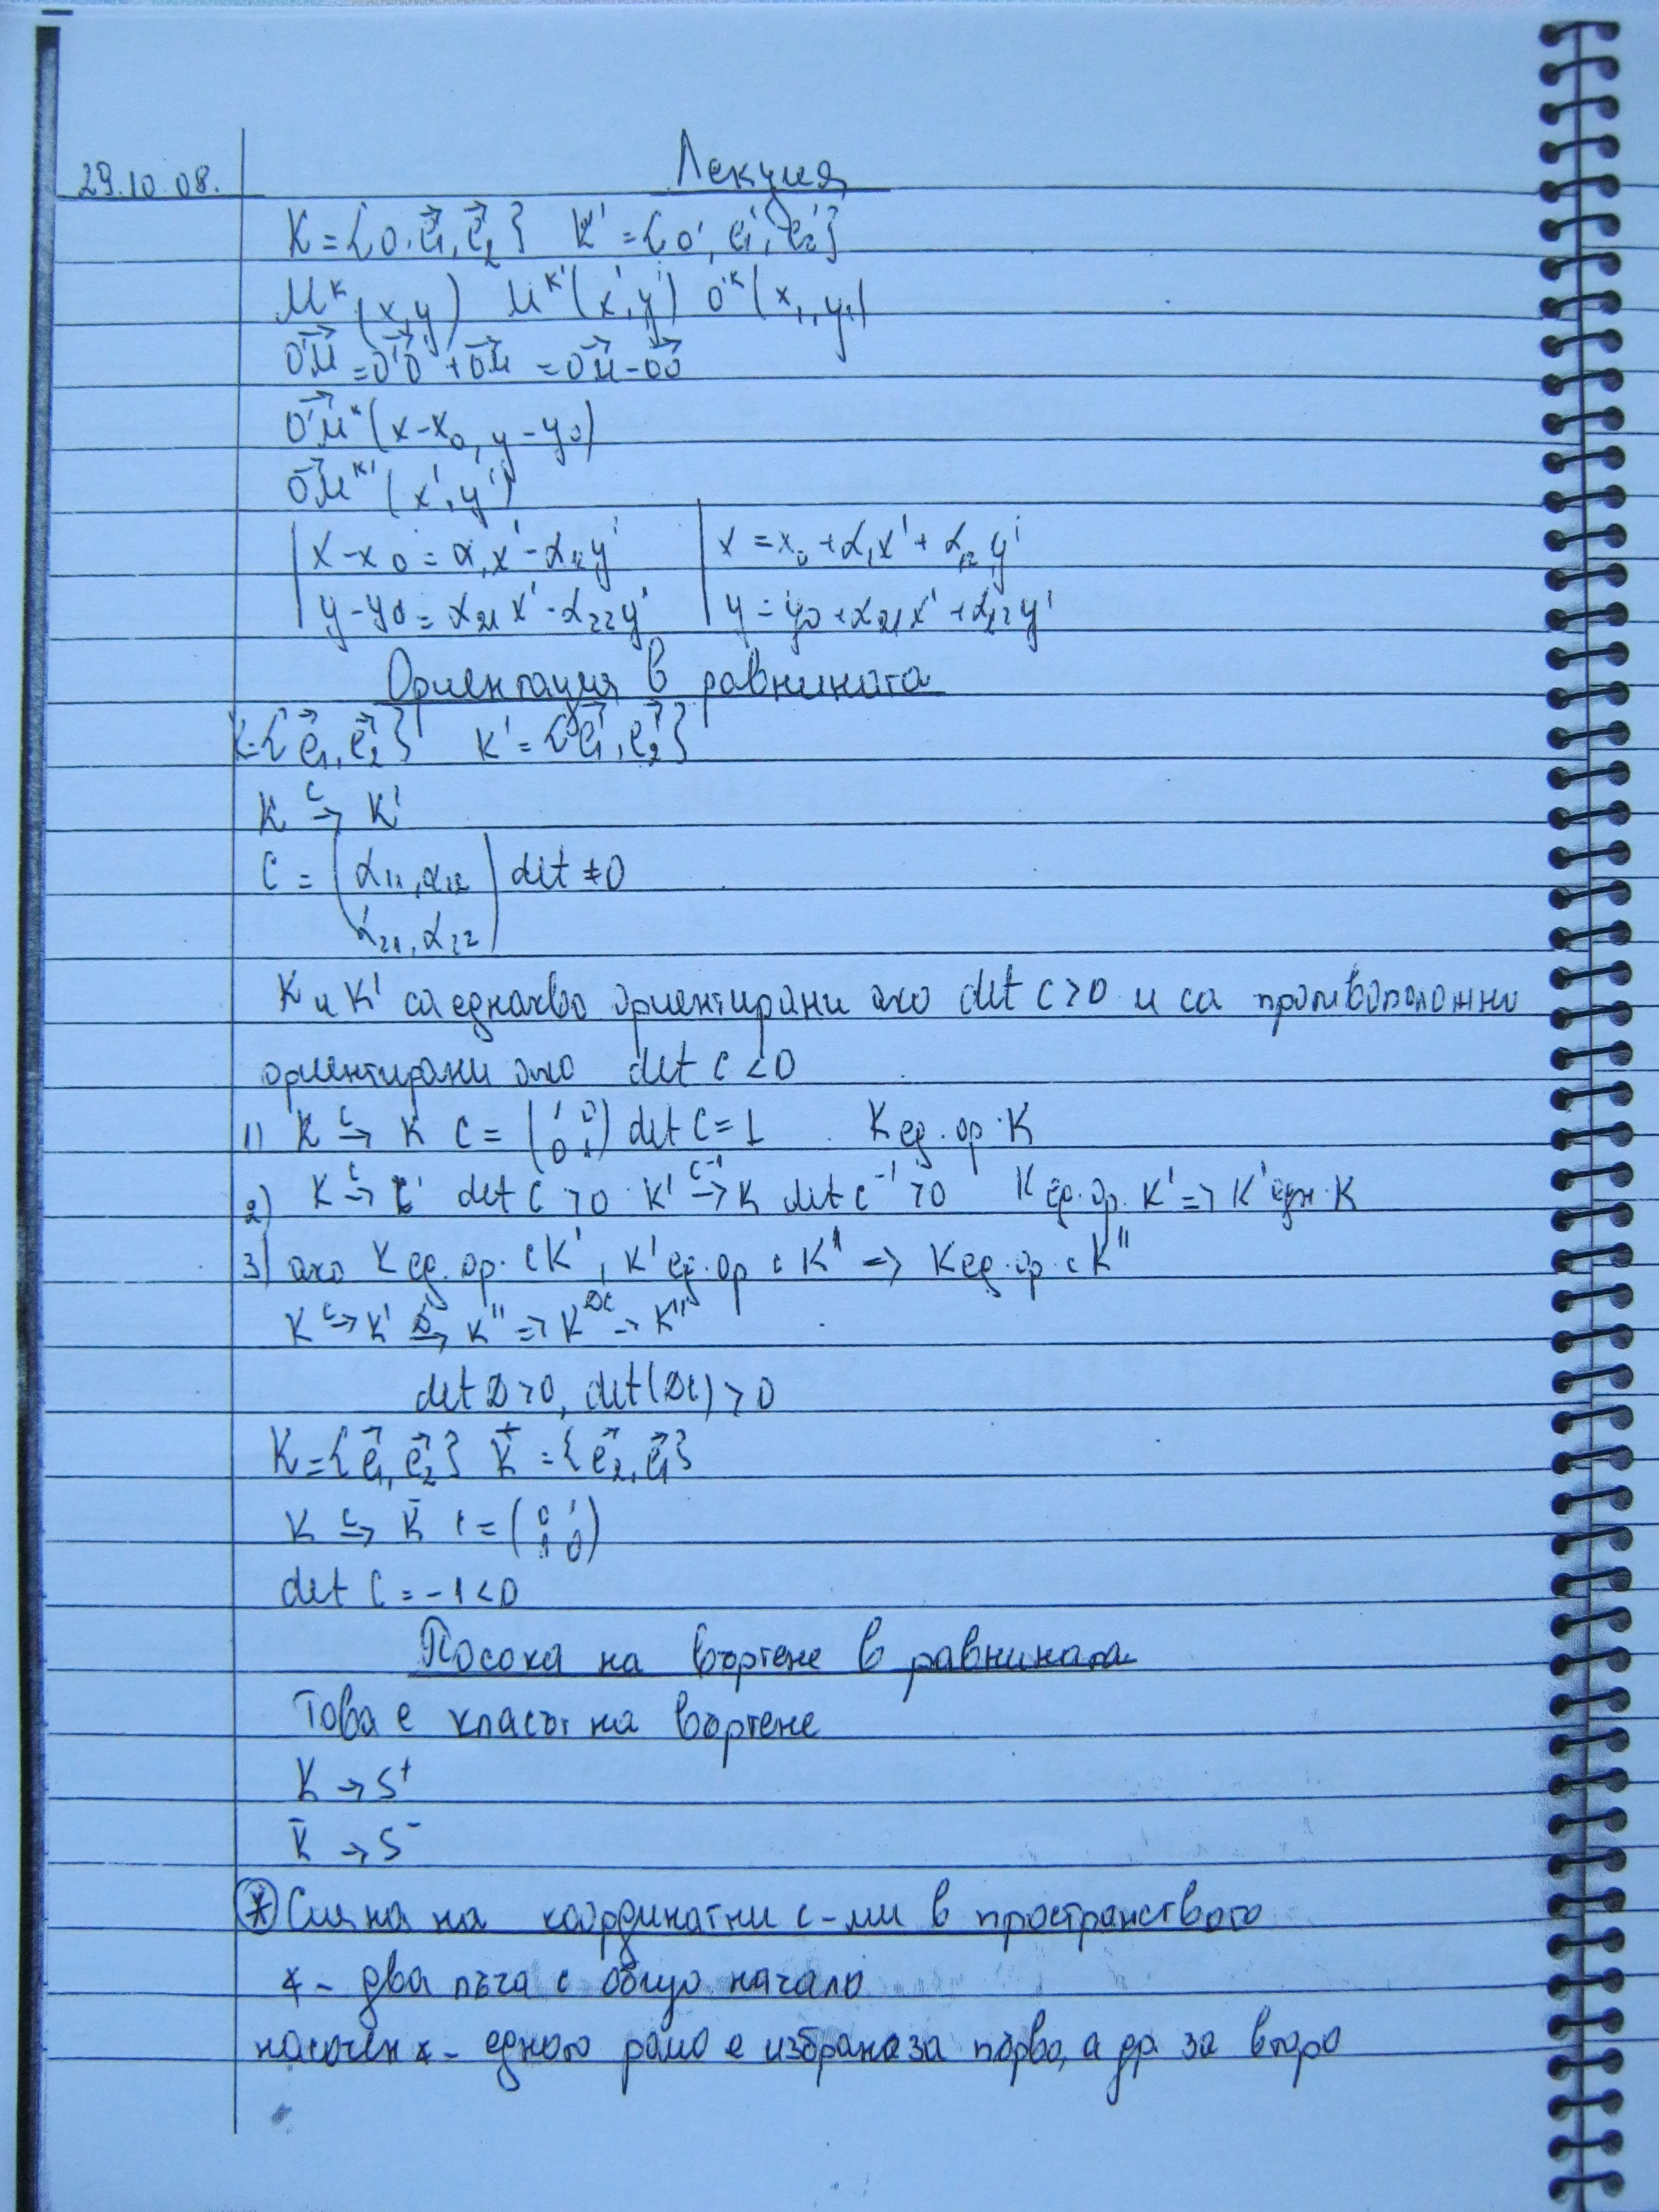 29.10.08.
Лекция
K = {O, e⃗₁, e⃗₂} K' = {O', e₁', e₂'}
M^K (x, y) M^K' (x', y') O'^K (x₁, y₁)
O'M⃗ = O'O⃗ + OM⃗ = OM⃗ - OO⃗
O'M⃗^K (x-x₀, y-y₀)
OM⃗^K' (x', y')
x-x₀ = α₁x' - α₁₂y' x = x₀ + α₁x' + α₁₂y'
y-y₀ = α₂₁x' - α₂₂y' y = y₀ + α₂₁x' + α₂₂y'
Ориентация в равнината
K = {e⃗₁, e⃗₂} K' = {e⃗₁', e⃗₂'}
K →^C K'
C = (α₁₁, α₁₂ det ≠ 0
α₂₁, α₂₂)
K и K' са еднакво ориентирани ако det C > 0 и са противоположно
ориентирани ако det C < 0
1) K →^C K C = (1 0 det C = 1 K ед. ор. K
0 1)
2) K →^C K' det C > 0 K' →^C⁻¹ K det C⁻¹ > 0 K ед. ор. K' => K' едн. K
3) ако K ед. ор. с K', K' ед. ор с K'' => K ед. ор. с K''
K →^C K' →^D K'' => K →^DC K''
det D > 0, det(DC) > 0
K = {e⃗₁, e⃗₂} K̄ = {e⃗₂, e⃗₁}
K →^C K̄ C = (0 1
1 0)
det C = -1 < 0
Посока на въртене в равнината
Това е класът на въртене
K → S⁺
K̄ → S⁻
* Смяна на координатни с-ми в пространството
∢ - два лъча с общо начало
насочен ∢ - едното рамо е избрано за първо, а др. за второ